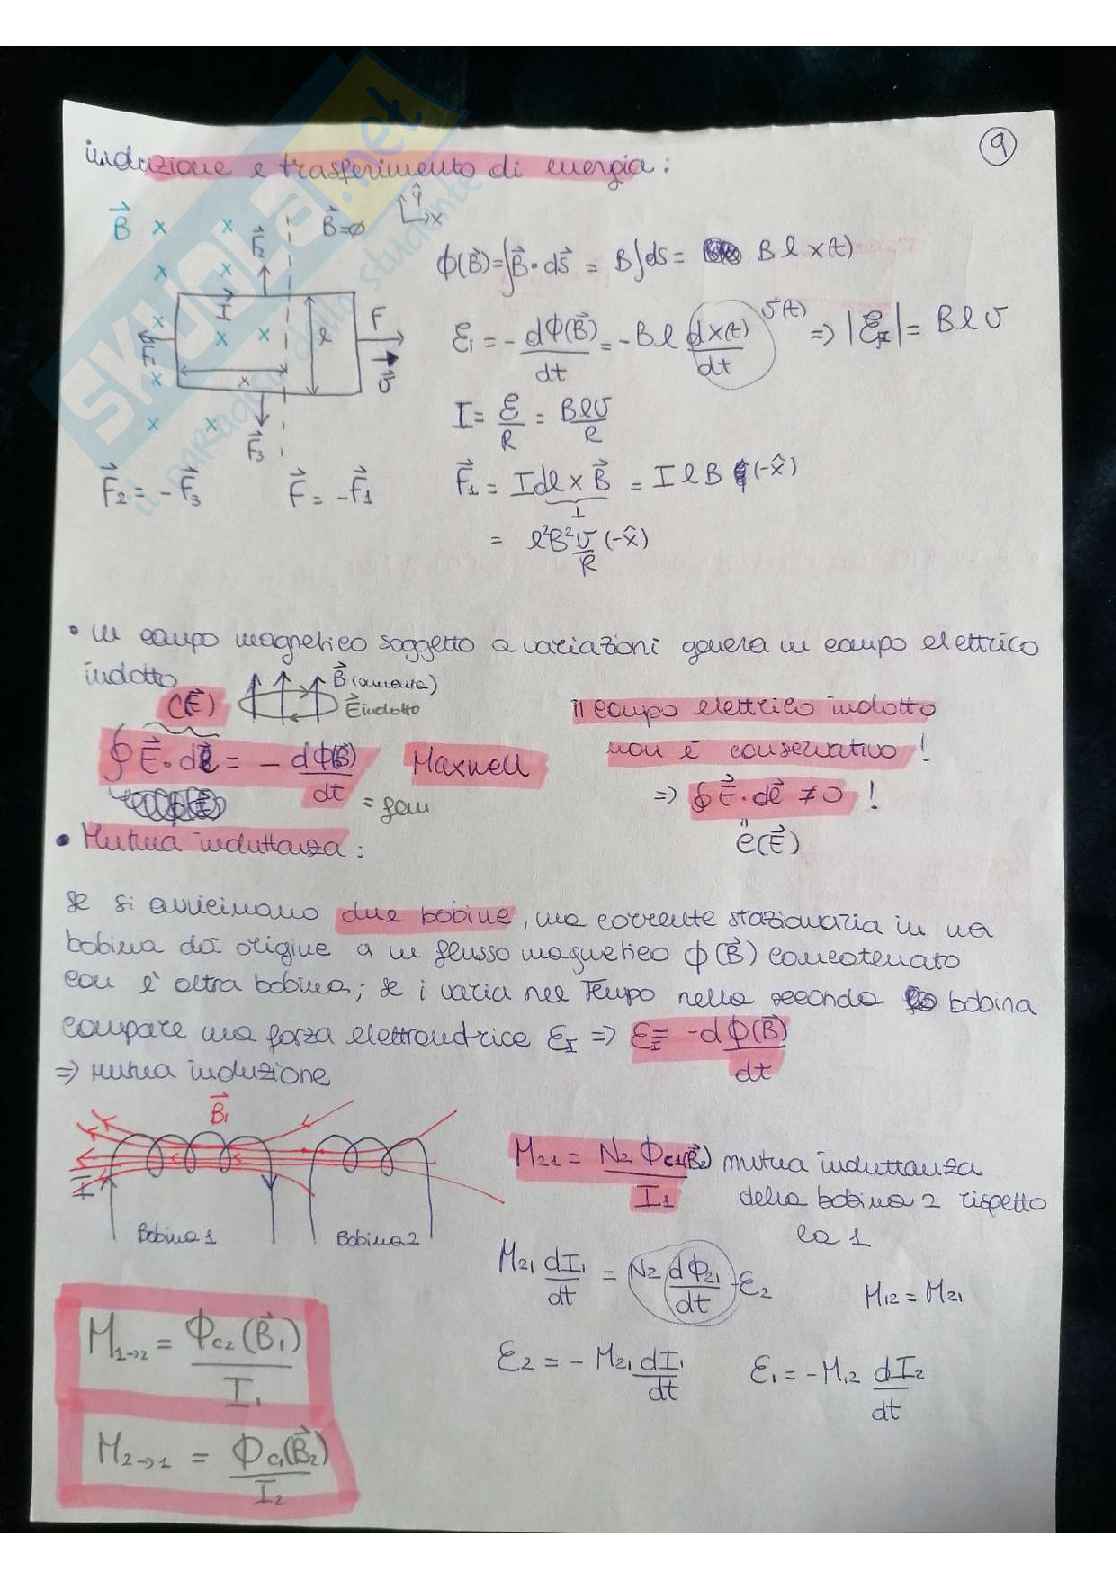 9
induzione e trasferimento di energia:
B⃗ x x F⃗2 B⃗=∅ ŷ x
ϕ(B⃗)=∫B⃗·dS⃗ = B∫dS = B l x(t)
I l F x v⃗ F⃗1
Ɛi = - dϕ(B⃗)/dt = -Bl dx(t)/dt v(t) ⇒ |ƐI| = Blv
I = Ɛ/R = Blv/R
F⃗3
F⃗2 = -F⃗3 F⃗ = -F⃗1
F⃗1 = Idl x B⃗ = I l B (-x̂)
⊥
= l²B²v/R (-x̂)
• un campo magnetico soggetto a variazioni genera un campo elettrico
indotto
C(E⃗) B⃗(aumenta)
E⃗ indotto
il campo elettrico indotto
non è conservativo!
∮E⃗·dl = - dϕ(B⃗)/dt = fem Maxwell
⇒ ∮E⃗·dl⃗ ≠ 0 !
"
C(E⃗)
• Mutua induttanza:
se si avvicinano due bobine, una corrente stazionaria in una
bobina dà origine a un flusso magnetico ϕ(B⃗) concatenato
con l'altra bobina; se i varia nel tempo nella seconda bobina
compare una forza elettromotrice ƐI ⇒ ƐI = -dϕ(B⃗)/dt
⇒ mutua induzione
B⃗1
I
Bobina 1 Bobina 2
M21 = N2 Φc1(B⃗2)/I1 mutua induttanza
della bobina 2 rispetto
la 1
M21 dI1/dt = N2 dΦ21/dt -Ɛ2 M12 = M21
Ɛ2 = - M21 dI1/dt Ɛ1 = -M12 dI2/dt
M1→2 = Φc2(B⃗1)/I1
M2→1 = Φc1(B⃗2)/I2